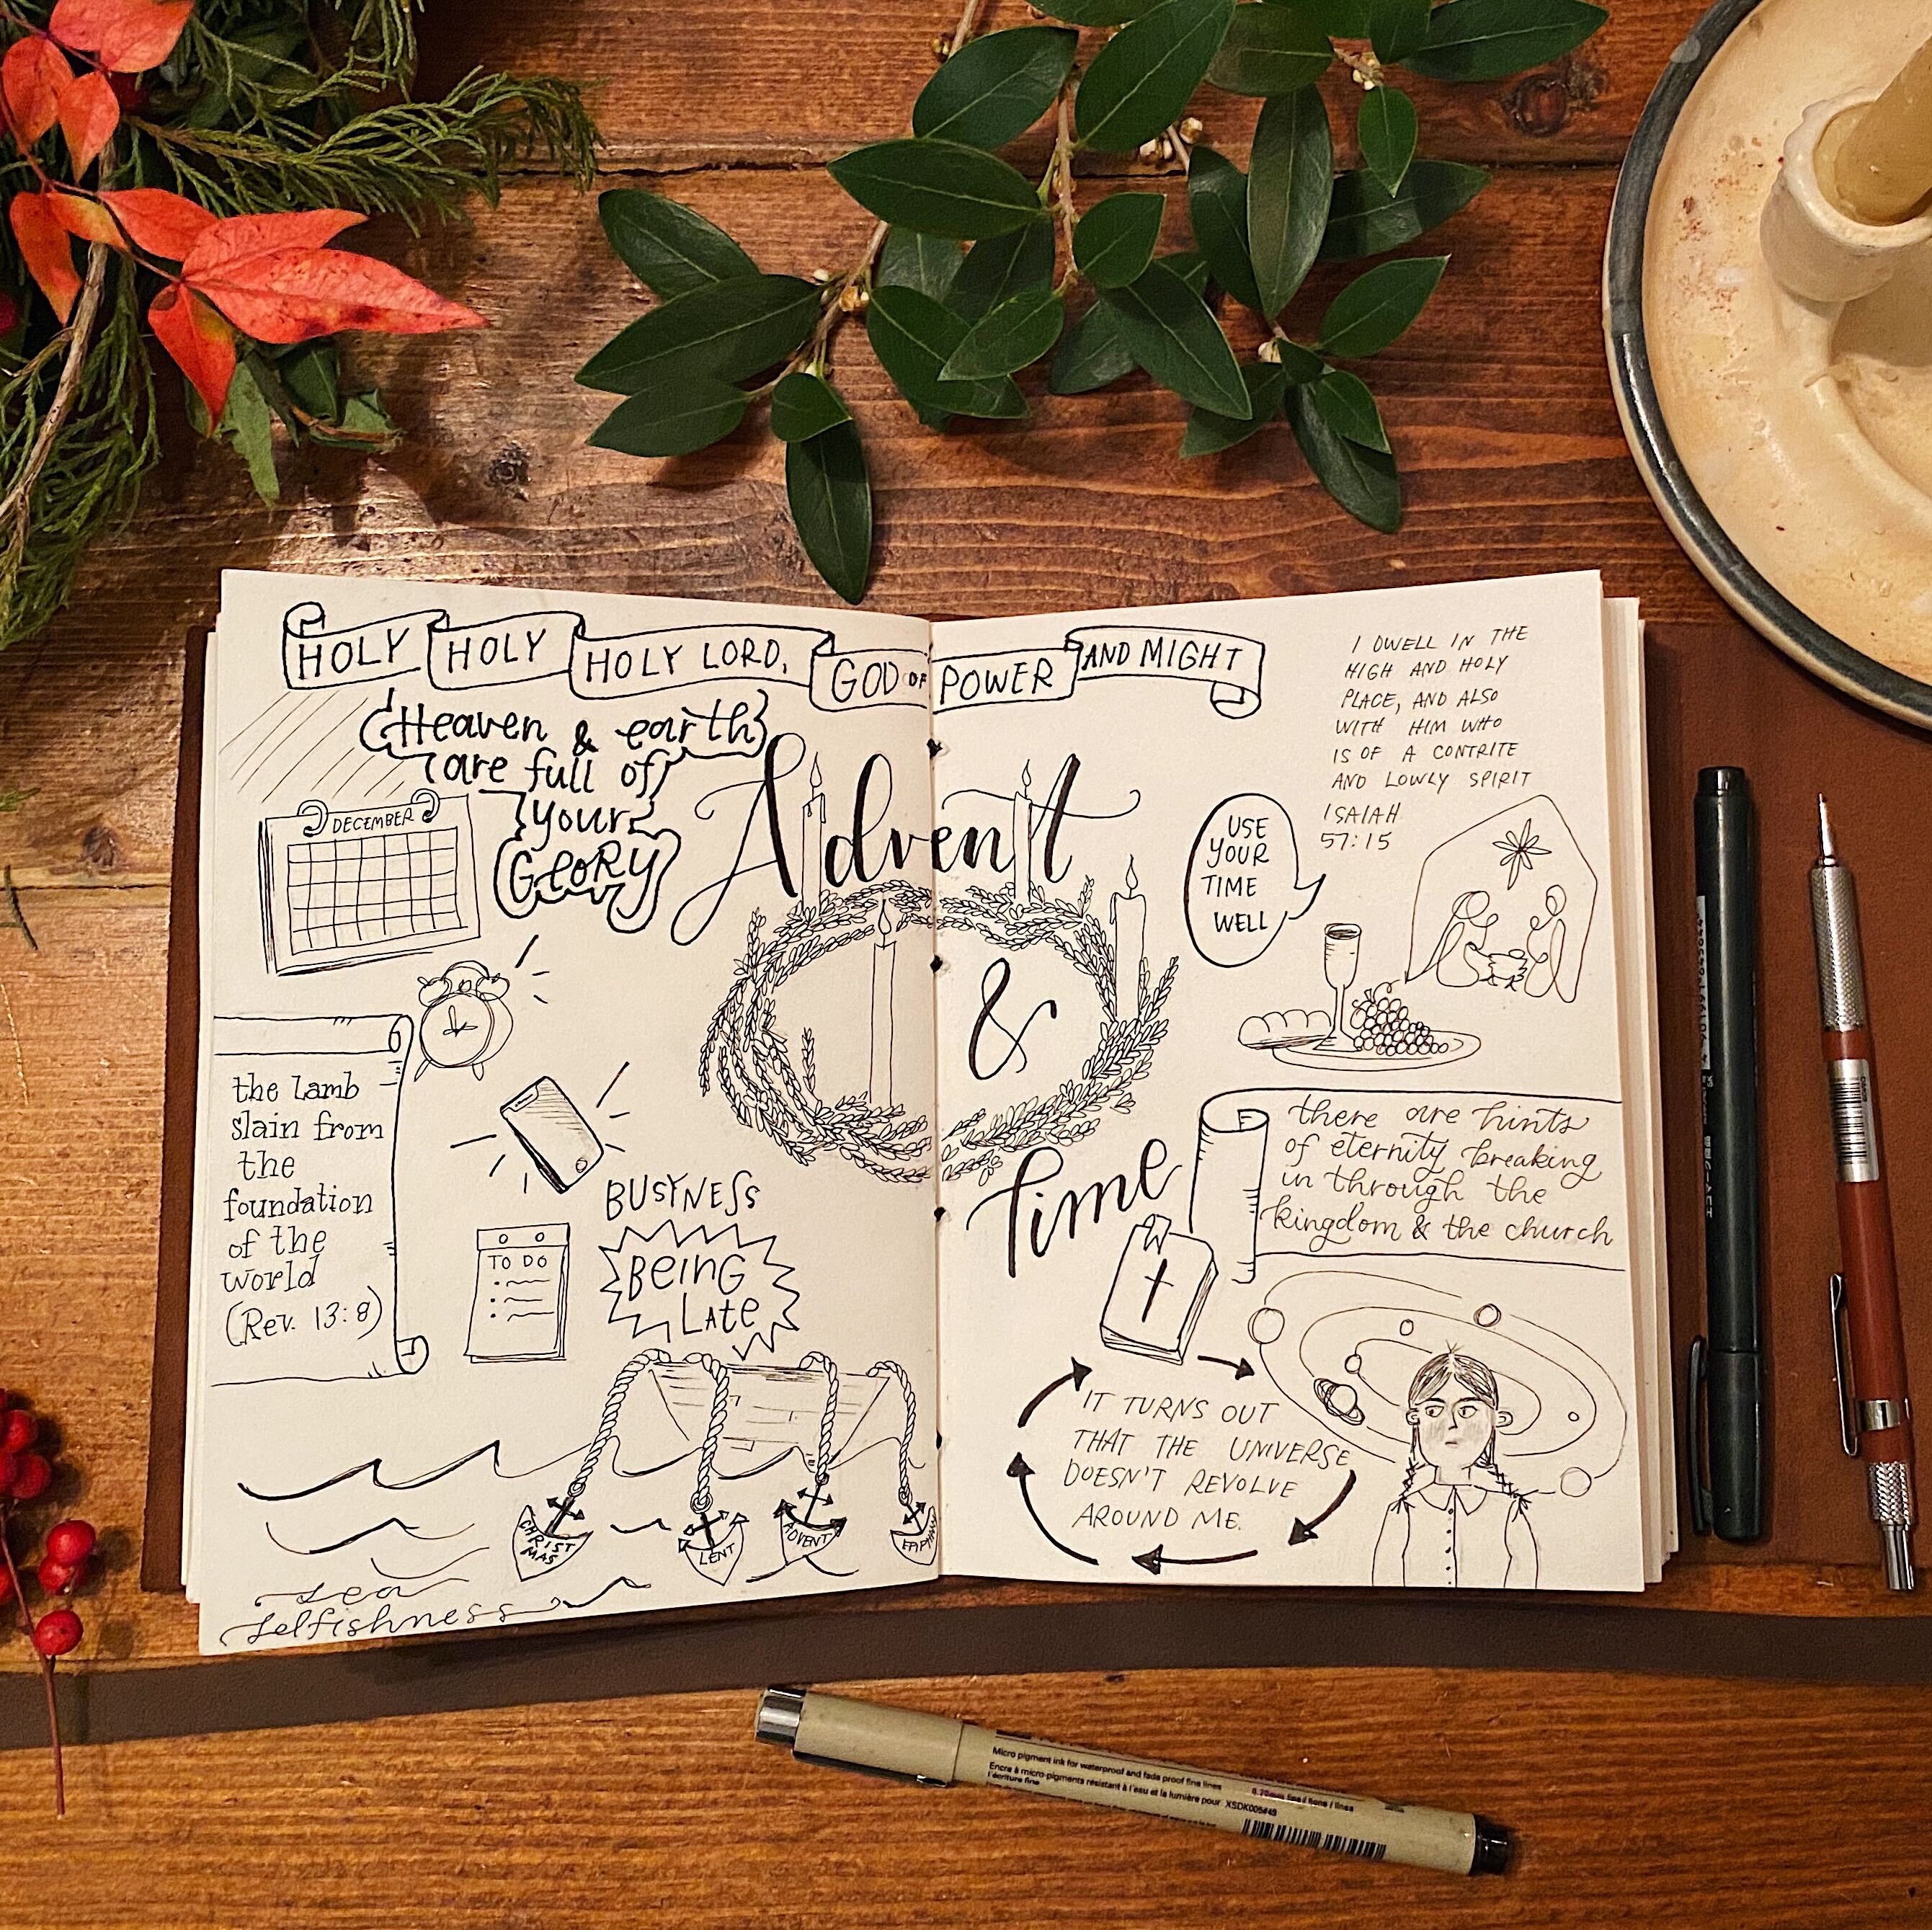 HOLY HOLY HOLY LORD, GOD OF POWER AND MIGHT
Heaven & earth
are full of
your
GLORY
DECEMBER
Advent
&
Time
the lamb
slain from
the
foundation
of the
world
(Rev. 13:8)
BUSYNESS
TO DO
BEING
LATE
CHRIST
MAS
LENT
ADVENT
EPIPHANY
sea
selfishness
I DWELL IN THE
HIGH AND HOLY
PLACE, AND ALSO
WITH HIM WHO
IS OF A CONTRITE
AND LOWLY SPIRIT
ISAIAH
57:15
USE
YOUR
TIME
WELL
there are hints
of eternity breaking
in through the
kingdom & the church
IT TURNS OUT
THAT THE UNIVERSE
DOESN'T REVOLVE
AROUND ME.
Micro pigment ink for waterproof and fade proof fine lines
Encre à micro-pigments résistant à l'eau et la lumière pour
l'écriture fine
XSDK005#49